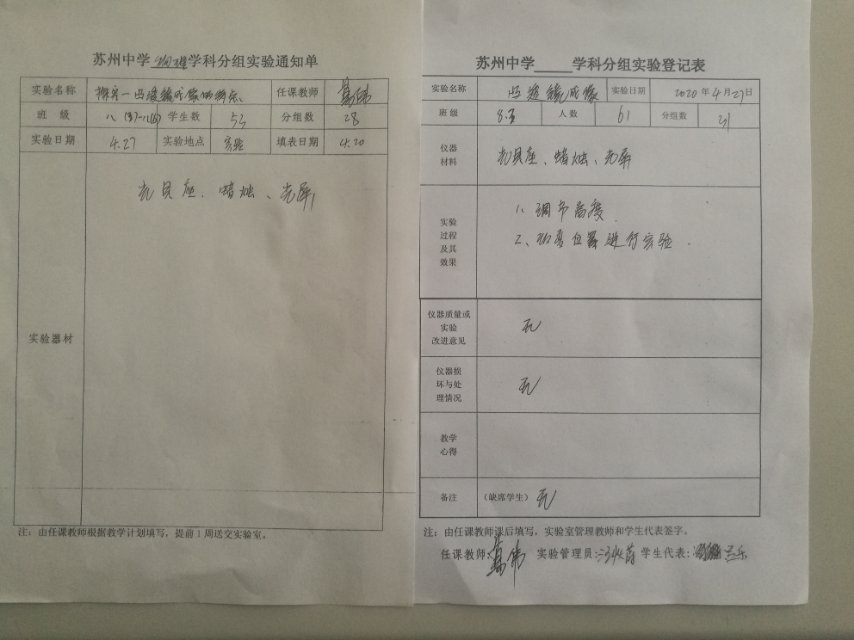 苏州中学 物理 学科分组实验通知单
实验名称 探究一凸透镜成像的特点 任课教师
班 级 八 学生数 53 分组数 28
实验日期 4.27 实验地点 实验 填表日期 4.20
光具座、蜡烛、光屏
实验器材
注：由任课教师根据教学计划填写，提前1周送交实验室。
苏州中学_____学科分组实验登记表
实验名称 凸透镜成像 实验日期 2020年4月27日
班 级 人 数 61 分组数 31
仪器
材料
光具座、蜡烛、光屏
实验
过程
及其
效果
1、调节高度
2、改变位置进行实验.
仪器质量或
实验
改进意见
无
仪器损
坏与处
理情况
无
教学
心得
备注 （缺席学生） 无
注：由任课教师课后填写，实验室管理教师和学生代表签字。
任课教师: 实验管理员: 学生代表: